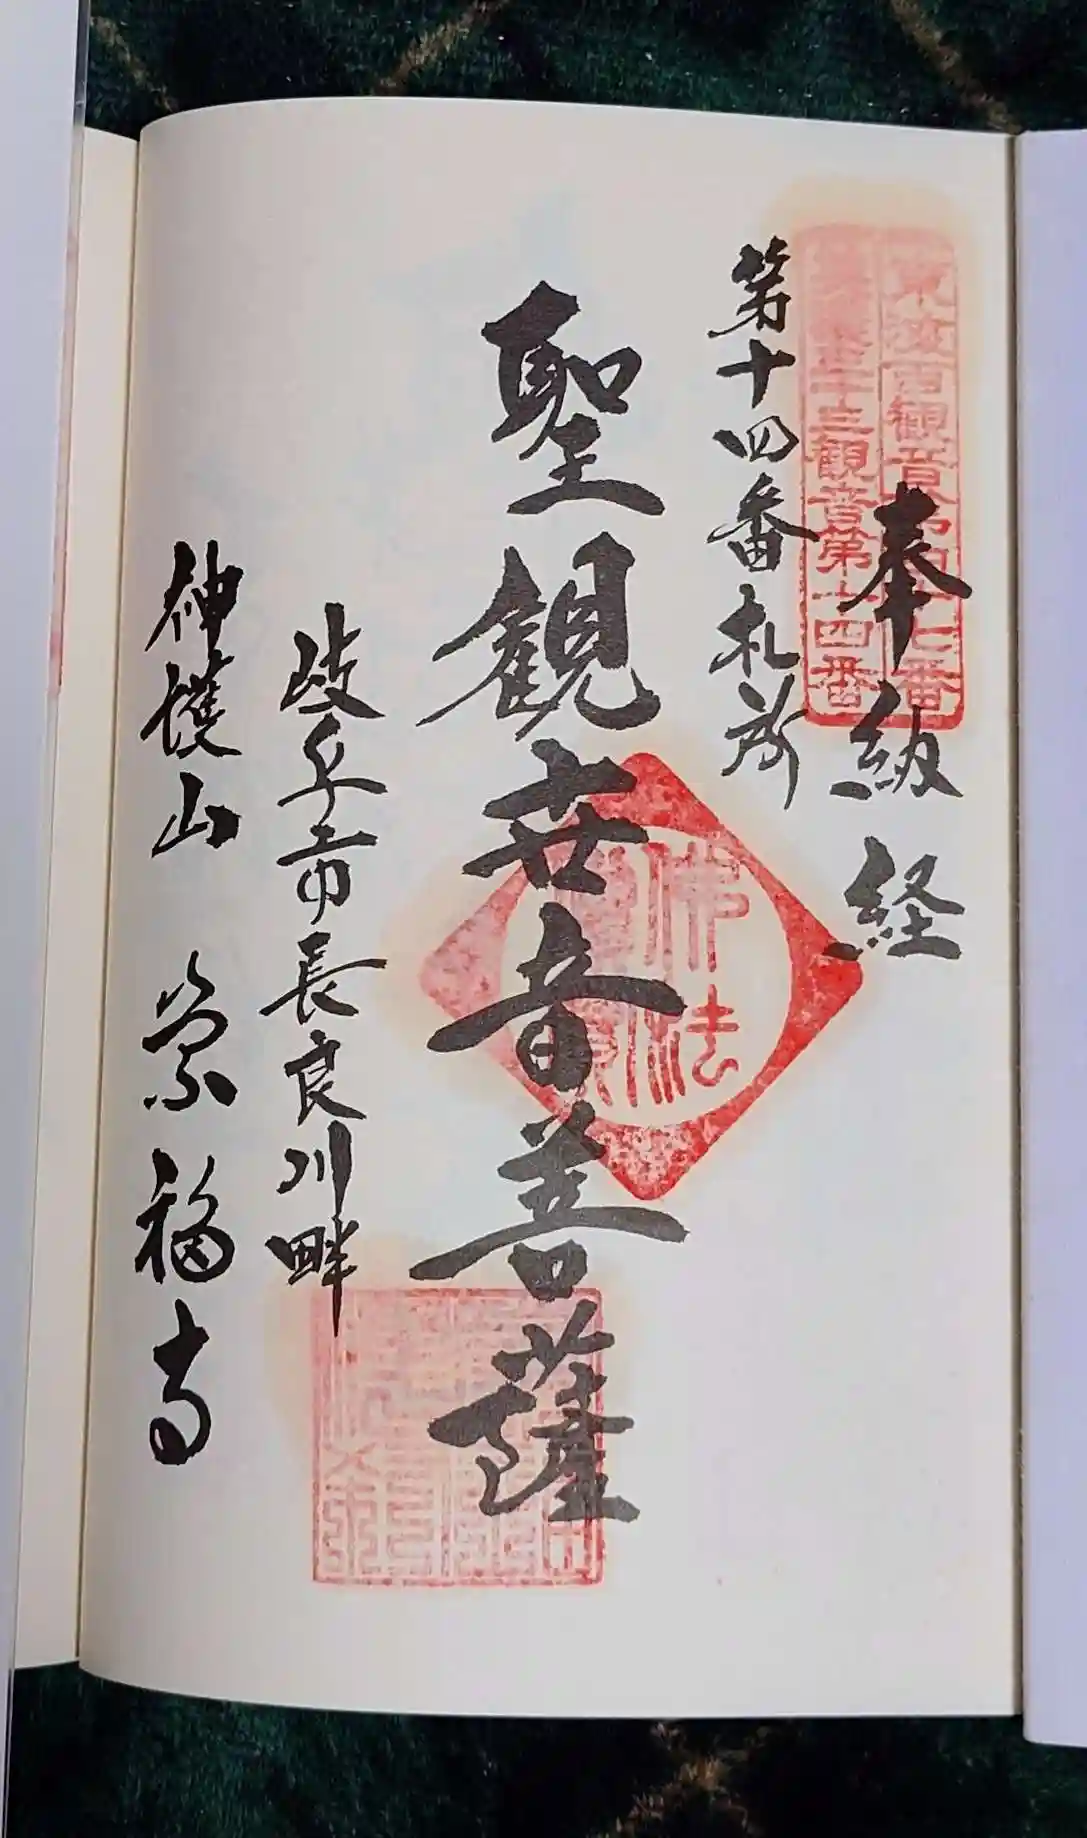 奉納経
第十四番札所
聖観世音菩薩
岐阜市長良川畔
神護山 崇福寺
観音
三十三観音第十四番
佛法